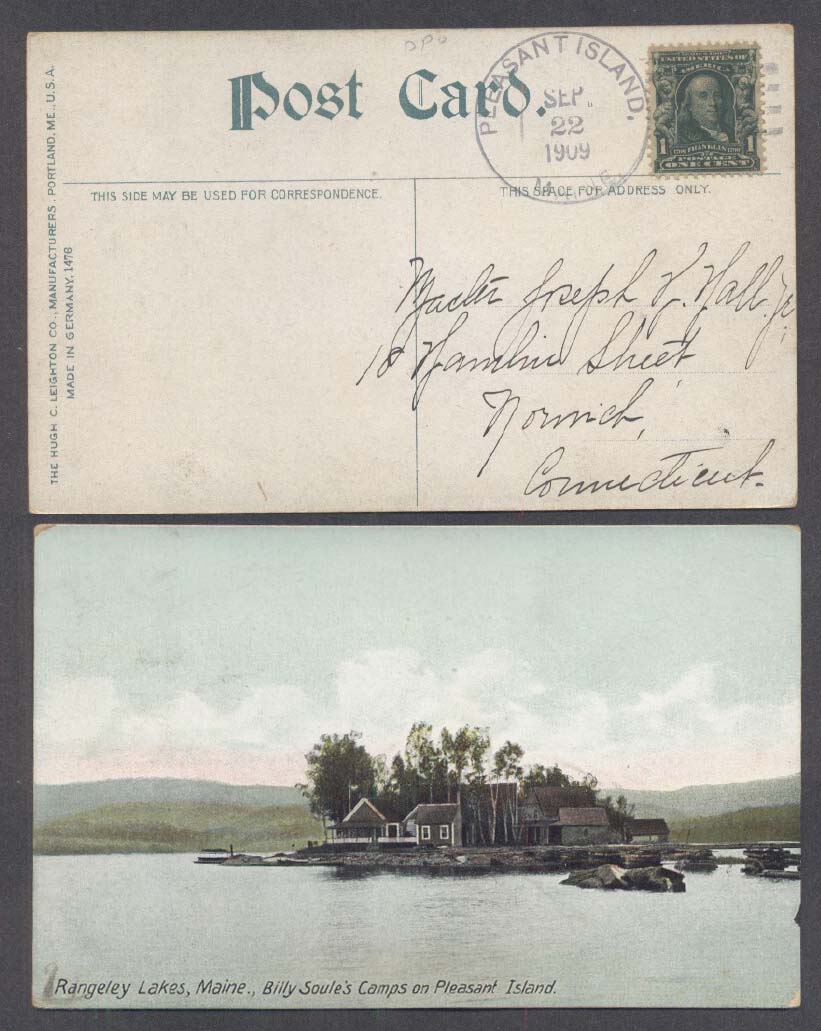 DPO
Post Card.
PLEASANT ISLAND.
SEP.
22
1909
MAINE
UNITED STATES OF
AMERICA
1 1
POSTAGE
ONE CENT
THIS SIDE MAY BE USED FOR CORRESPONDENCE.
THIS SPACE FOR ADDRESS ONLY.
THE HUGH C. LEIGHTON CO., MANUFACTURERS, PORTLAND, ME., U.S.A.
MADE IN GERMANY. 1476
Master Joseph Hall Jr.
18 Hamlin Street
Norwich,
Connecticut.
Rangeley Lakes, Maine., Billy Soule's Camps on Pleasant Island.